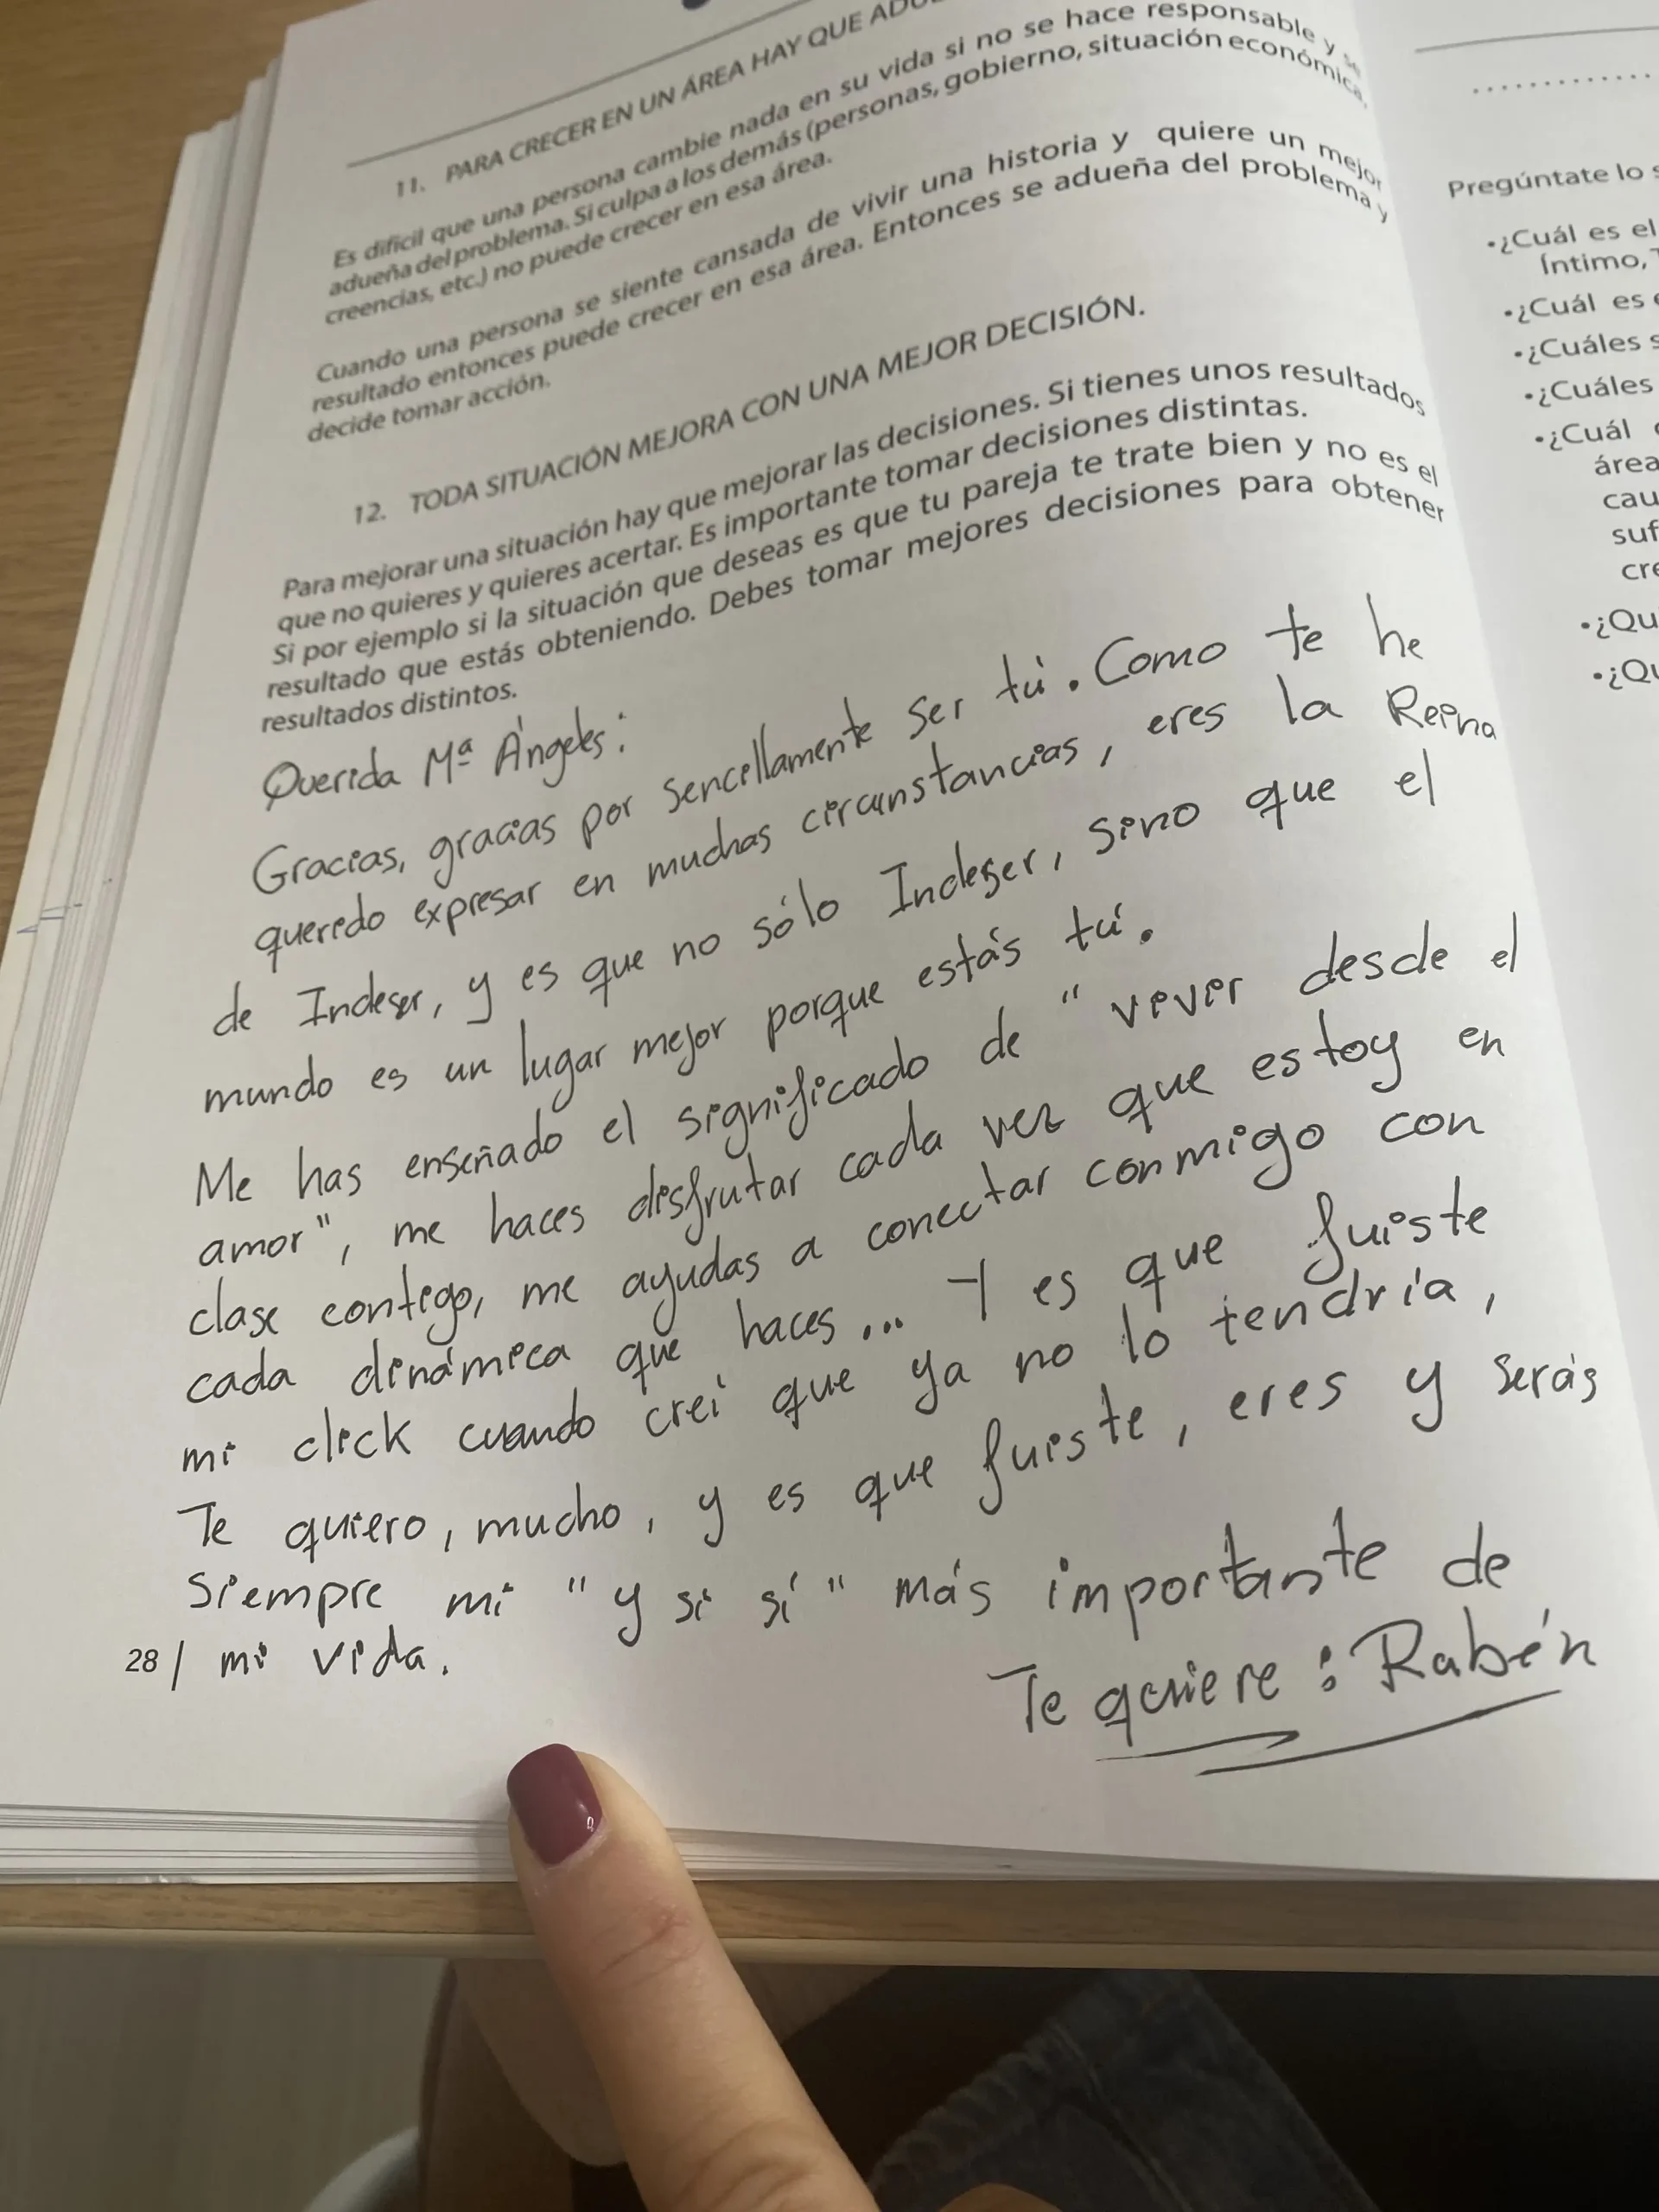 11. PARA CRECER EN UN ÁREA HAY QUE
Es difícil que una persona cambie nada en su vida si no se hace responsable y se
adueña del problema. Si culpa a los demás (personas, gobierno, situación económica,
creencias, etc.) no puede crecer en esa área.
Cuando una persona se siente cansada de vivir una historia y quiere un mejor
resultado entonces puede crecer en esa área. Entonces se adueña del problema y
decide tomar acción.
12. TODA SITUACIÓN MEJORA CON UNA MEJOR DECISIÓN.
Para mejorar una situación hay que mejorar las decisiones. Si tienes unos resultados
que no quieres y quieres acertar. Es importante tomar decisiones distintas.
Si por ejemplo si la situación que deseas es que tu pareja te trate bien y no es el
resultado que estás obteniendo. Debes tomar mejores decisiones para obtener
resultados distintos.
Querida Mª Ángeles:
Gracias, gracias por sencillamente ser tú. Como te he
querido expresar en muchas circunstancias, eres la Reina
de Indeser, y es que no sólo Indeser, sino que el
mundo es un lugar mejor porque estás tú.
Me has enseñado el significado de "vivir desde el
amor", me haces disfrutar cada vez que estoy en
clase contigo, me ayudas a conectar conmigo con
cada dinámica que haces... Y es que fuiste
mi click cuando creí que ya no lo tendría,
Te quiero, mucho, y es que fuiste, eres y serás
siempre mi "y si sí" más importante de
mi vida.
Te quiere: Rubén
28 /
Pregúntate lo
•¿Cuál es el
Íntimo,
•¿Cuál es
•¿Cuáles
•¿Cuáles
•¿Cuál
área